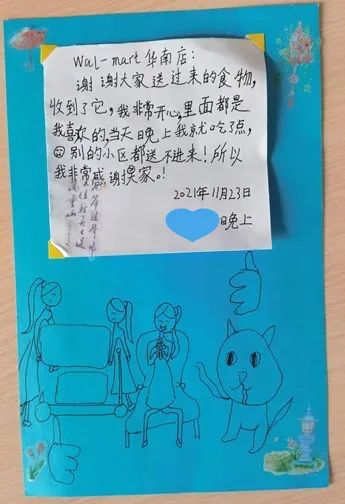 Wal-mart华南店：
谢谢大家送过来的食物，
收到了它，我非常开心，里面都是
我喜欢的，当天晚上我就吃了点，
别的小区都送不进来！所以
我非常感谢大家。！
2021年11月23日
晚上